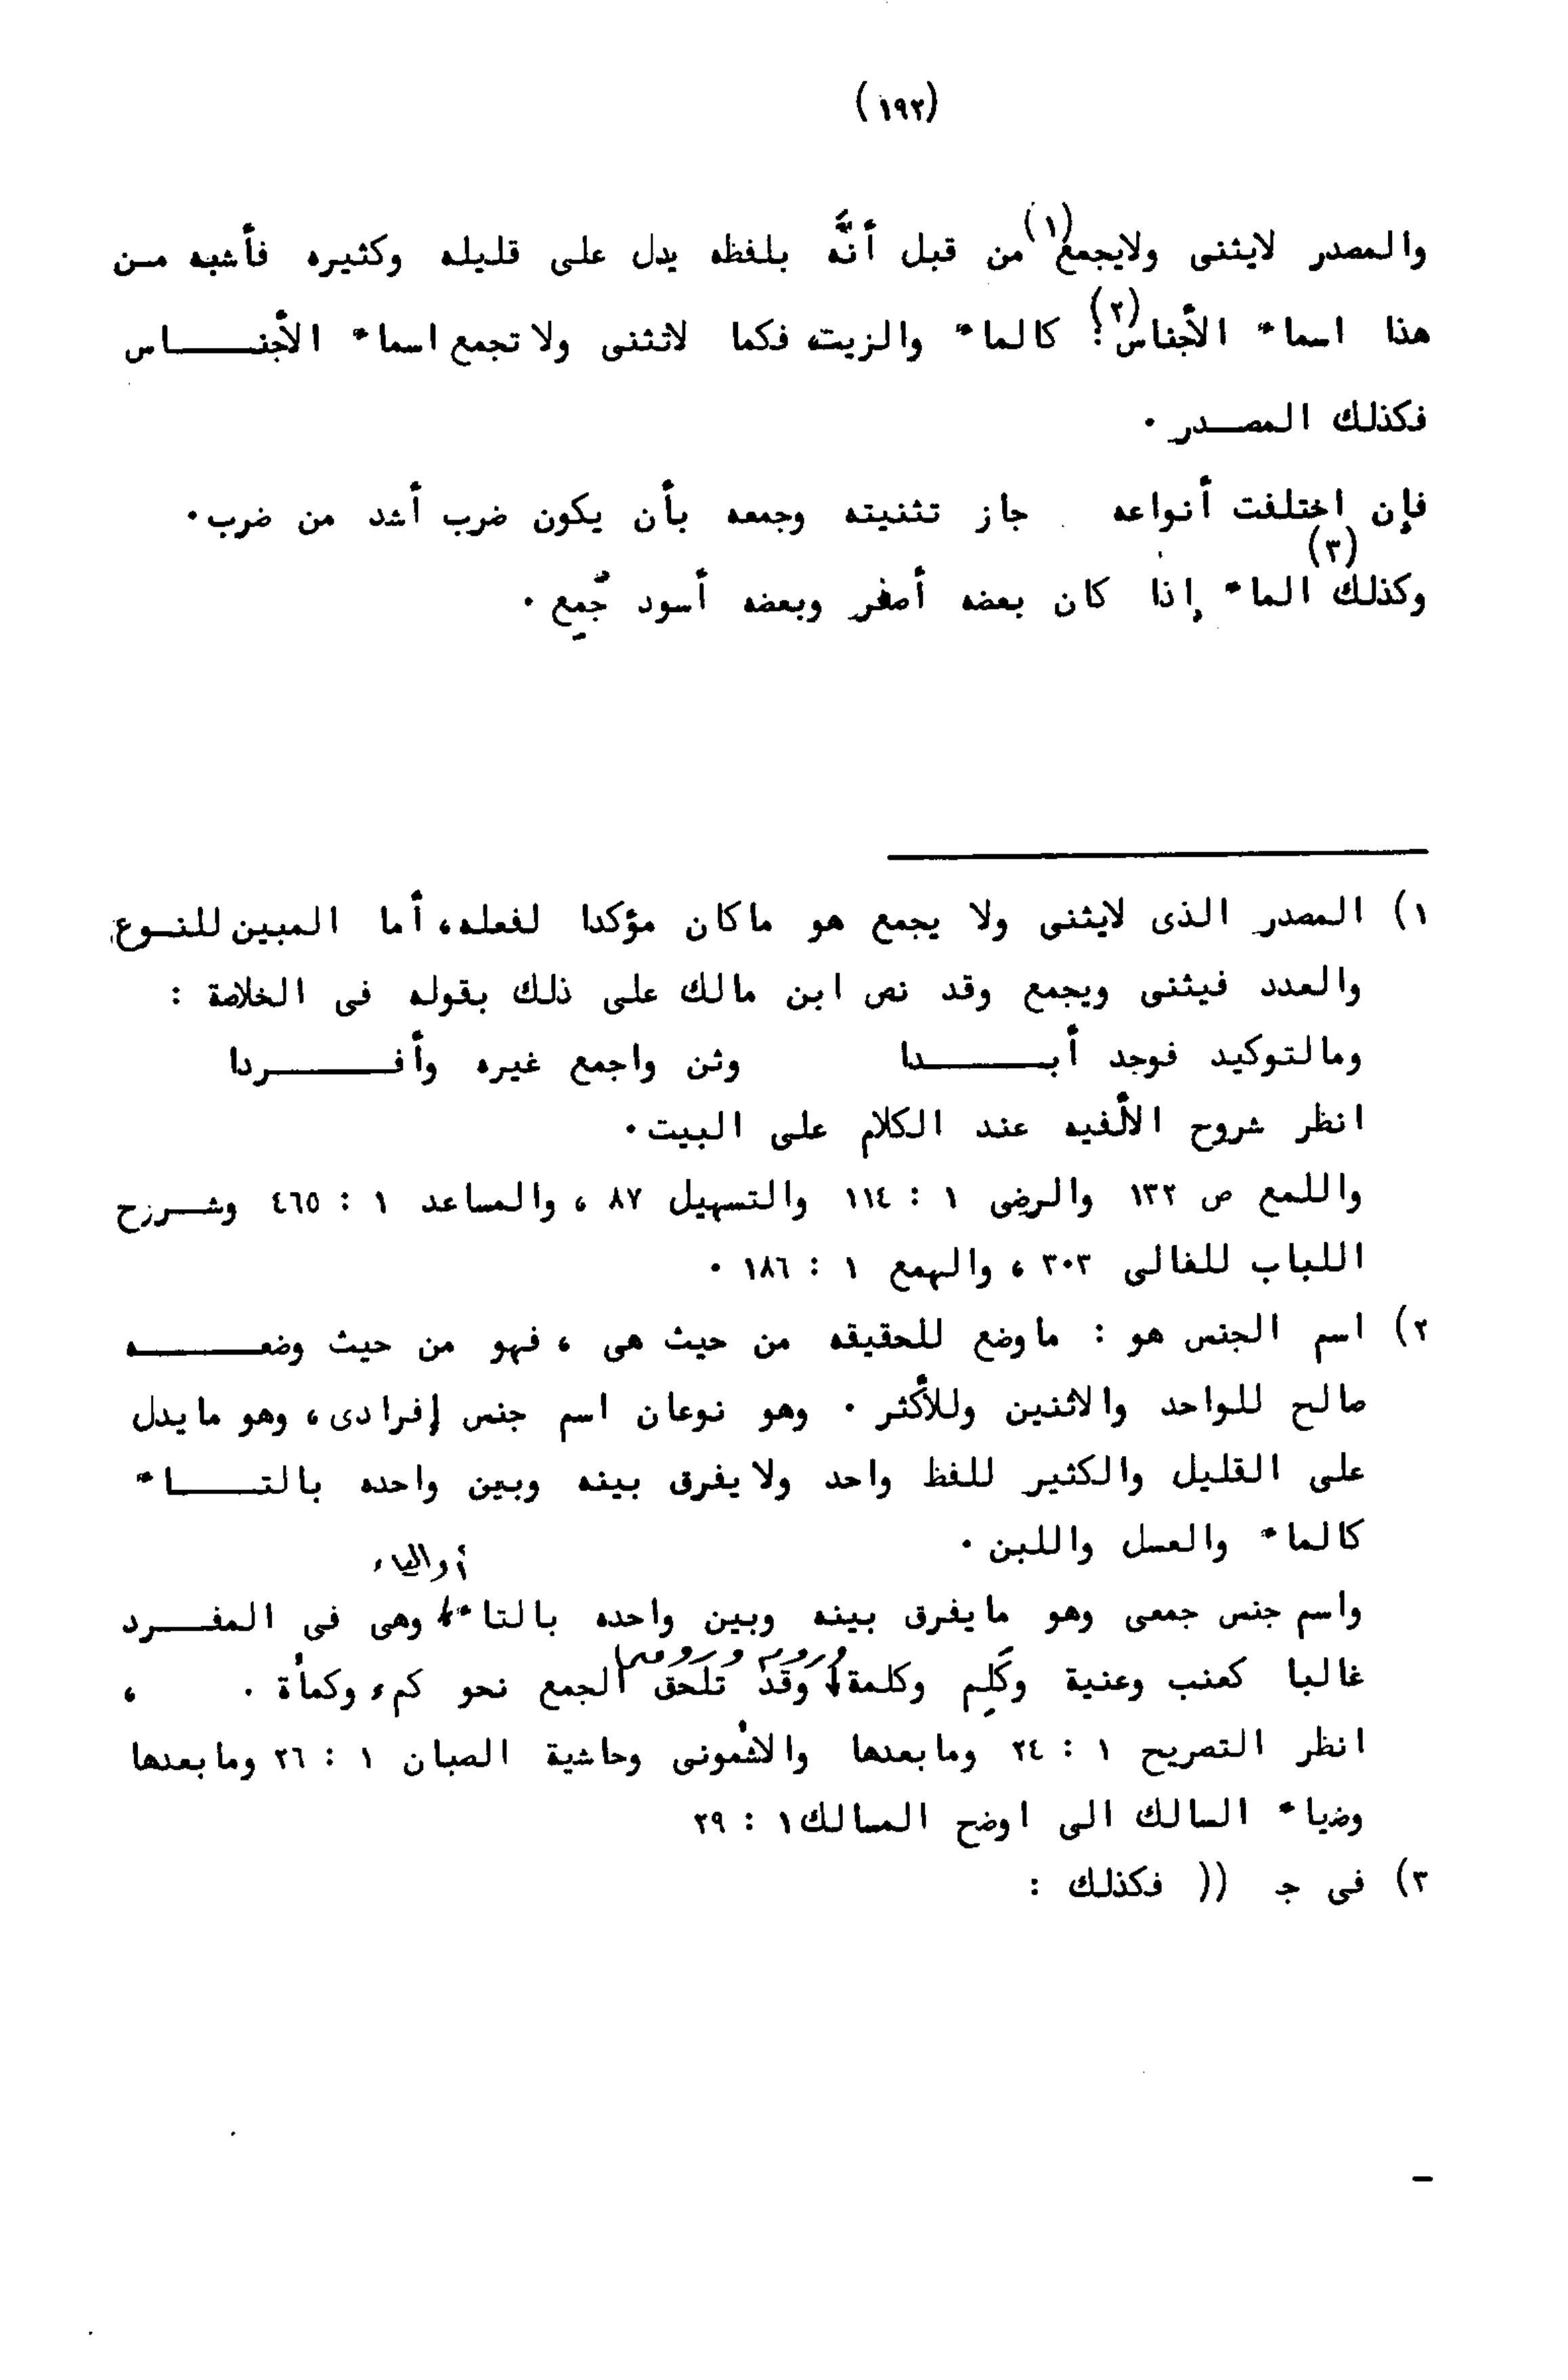 (١٩٢)
والمصدر لايثنى ولايجمع(١) من قبل أنَّه بلفظه يدل على قليله وكثيره فأشبه من
هذا اسماء الأجناس(٢): كالماء والزيت، فكما لاتثنى ولا تجمع اسماء الأجناس
فكذلك المصدر .
فإن اختلفت أنواعه جاز تثنيته وجمعه بأن يكون ضرب أشد من ضرب .
وكذلك(٣) الماء إذا كان بعضه أصفر وبعضه أسود جُمِع .
١) المصدر الذى لايثنى ولا يجمع هو ماكان مؤكدا لفعله، أما المبين للنوع
والعدد فيثنى ويجمع وقد نص ابن مالك على ذلك بقوله فى الخلاصة :
ومالتوكيد فوحد أبدا وثن واجمع غيره وأفردا
انظر شروح الألفيه عند الكلام على البيت .
واللمع ص ١٣٢ والرضى ١ : ١١٤ والتسهيل ٨٧ ، والمساعد ١ : ٤٦٥ وشرح
اللباب للفالى ٣٠٣ ، والهمع ١ : ١٨٦ .
٢) اسم الجنس هو : ماوضع للحقيقه من حيث هى ، فهو من حيث وضعه
صالح للواحد والاثنين وللأكثر . وهو نوعان اسم جنس إفرادى ، وهو مايدل
على القليل والكثير للفظ واحد ولا يفرق بينه وبين واحده بالتاء
كالماء والعسل واللبن .
واسم جنس جمعى وهو مايفرق بينه وبين واحده بالتاء أو الياء وهى فى المفرد
غالبا كعنب وعنبة وكَلِم وكلمة وروم ورومى وقد تلحق الجمع نحو كمء وكمأة . ،
انظر التصريح ١ : ٢٤ ومابعدها والاشمونى وحاشية الصبان ١ : ٢٦ ومابعدها
وضياء السالك الى اوضح المسالك ١ : ٢٩
٣) فى جـ (( فكذلك :